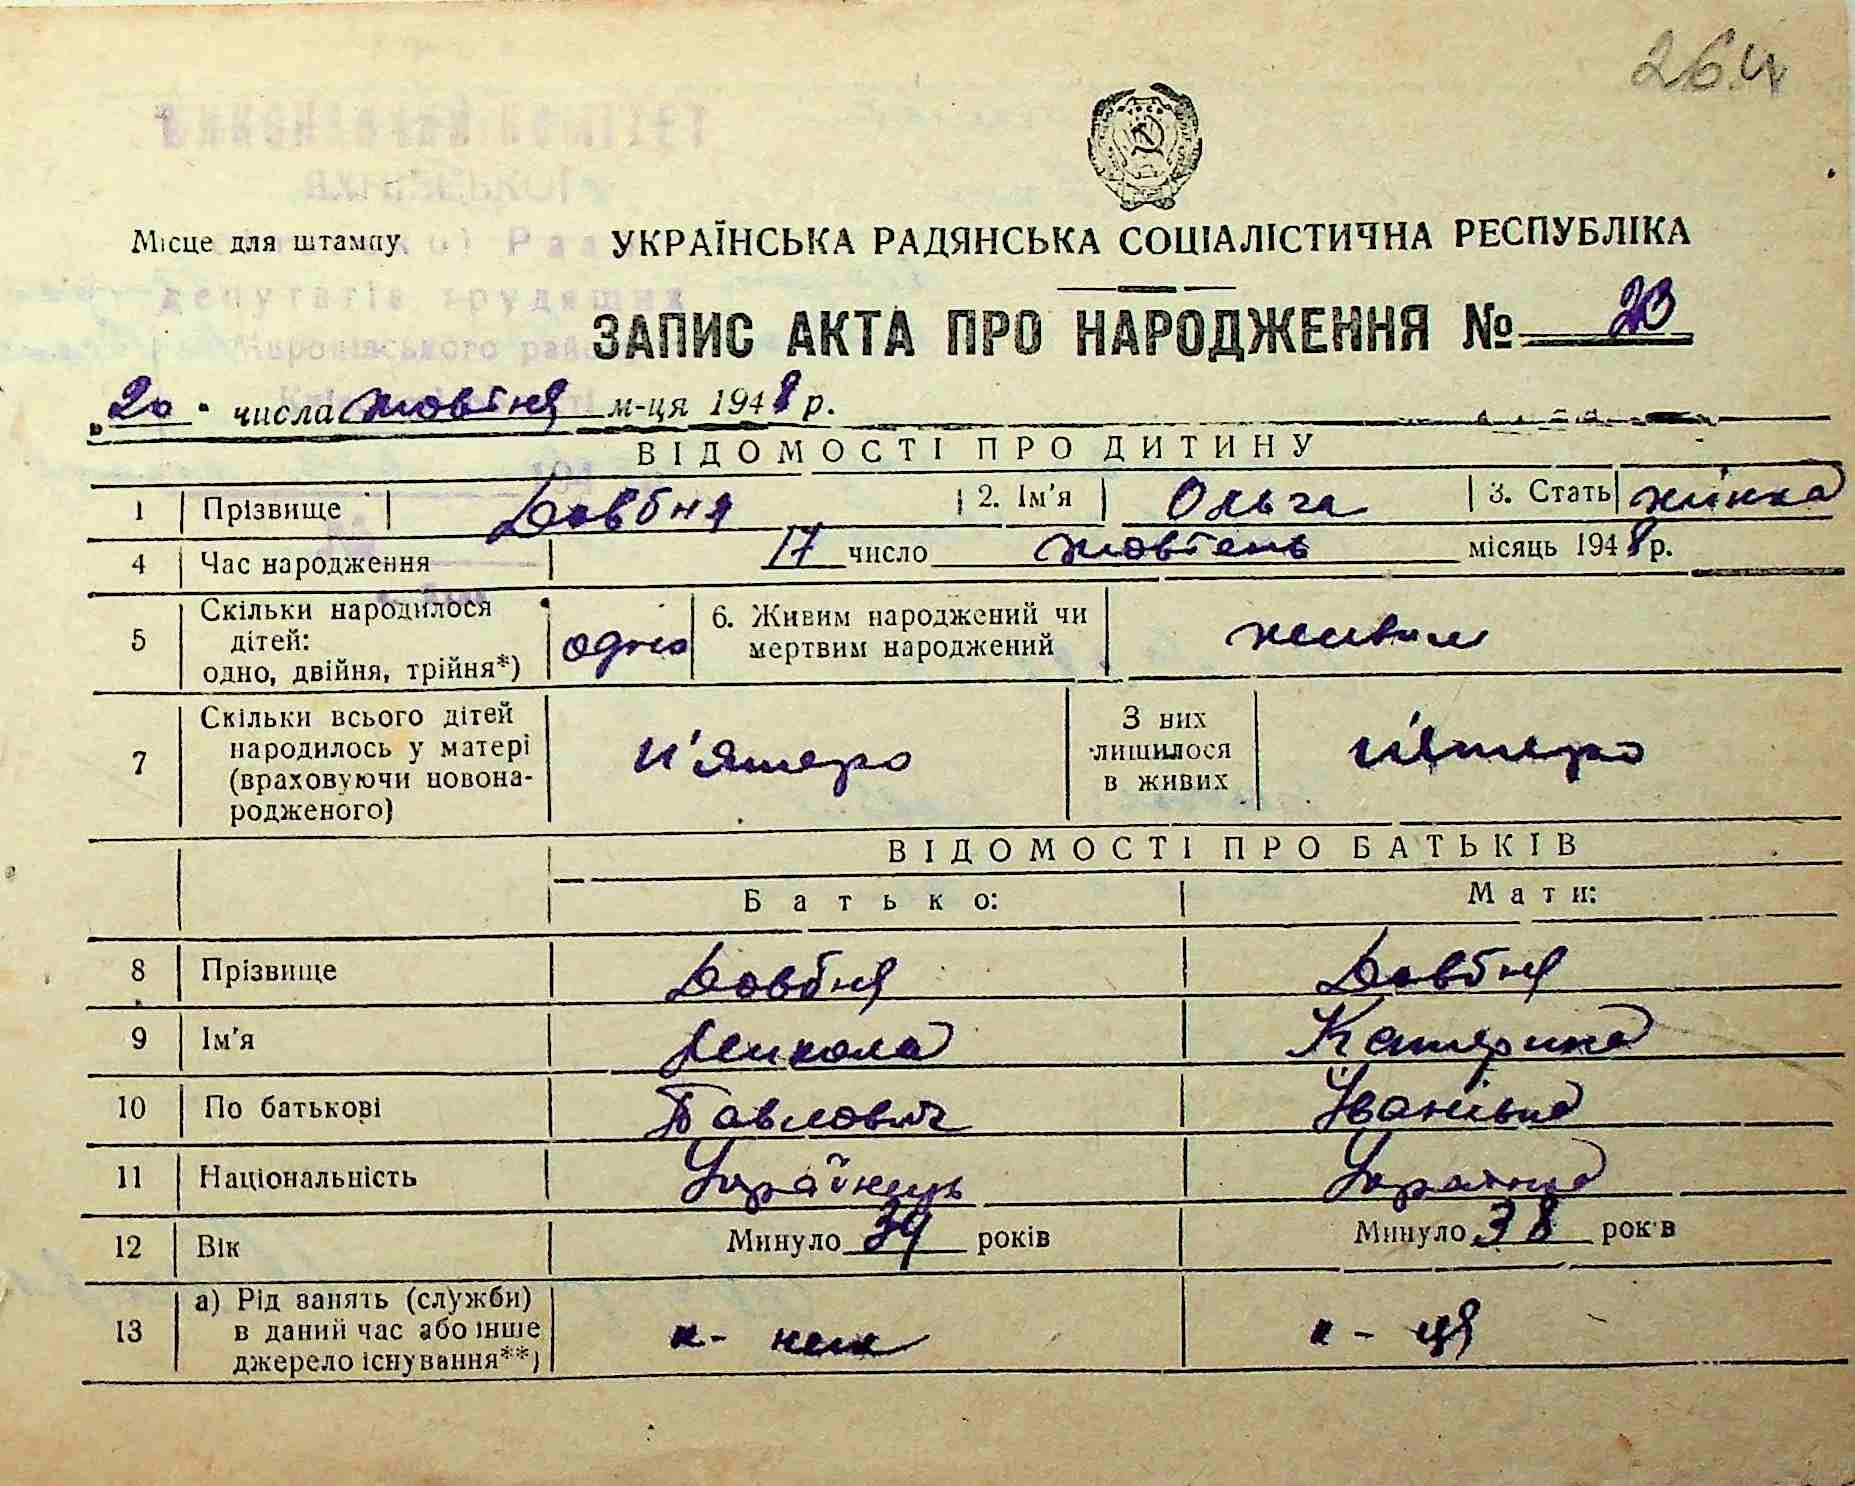 26
Місце для штампу
УКРАЇНСЬКА РАДЯНСЬКА СОЦІАЛІСТИЧНА РЕСПУБЛІКА
депутатів трудящих
ЗАПИС АКТА ПРО НАРОДЖЕННЯ № 23
„20" числа жовтня м-ця 1948 р.
ВІДОМОСТІ ПРО ДИТИНУ
1 Прізвище Довбня 2. Ім'я Ольга 3. Стать жінка
4 Час народження 17 число жовтень місяць 1948 р.
5 Скільки народилося дітей: одно, двійня, трійня*) одно 6. Живим народжений чи мертвим народжений живим
7 Скільки всього дітей народилось у матері (враховуючи новонародженого) п'ятеро З них лишилося в живих п'ятеро
ВІДОМОСТІ ПРО БАТЬКІВ
Батько: Мати:
8 Прізвище Довбня Довбня
9 Ім'я Микола Катерина
10 По батькові Павлович Іванівна
11 Національність Українець Українка
12 Вік Минуло 39 років Минуло 38 рок в
13 а) Рід занять (служби) в даний час або інше джерело існування**) к-ник к-ця